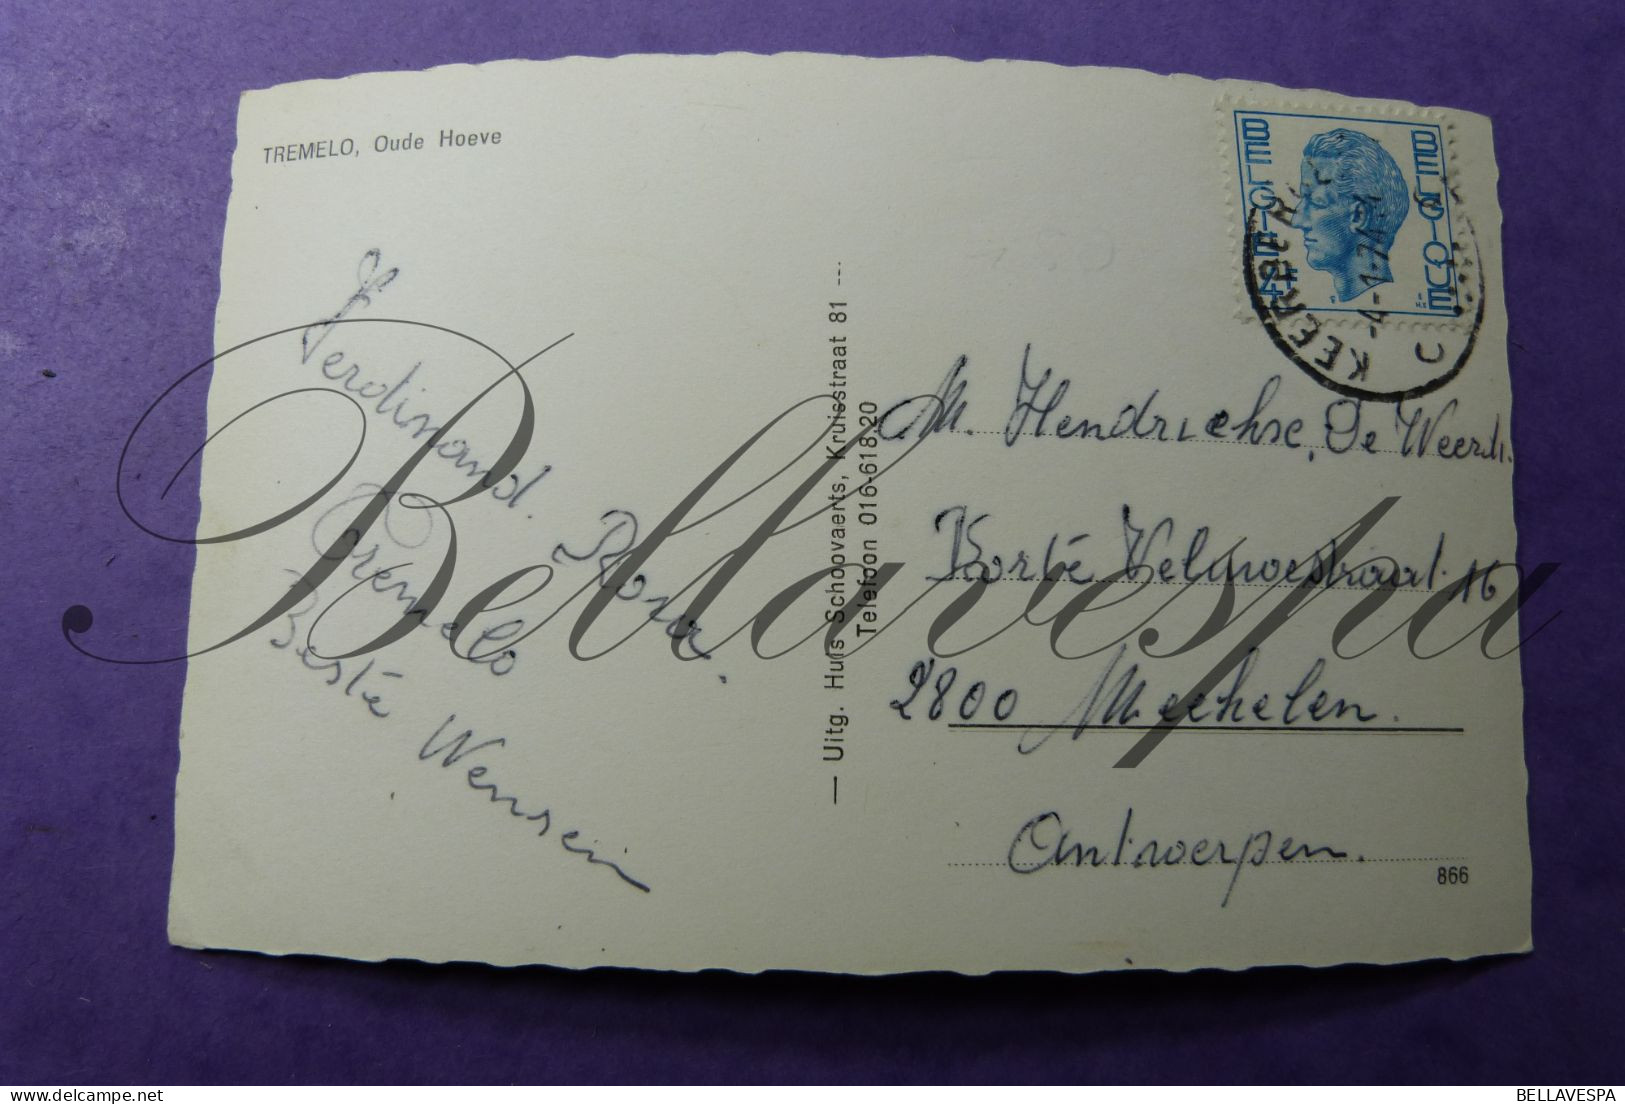 TREMELO, Oude Hoeve
Ferdinand. Rosa.
Tremelo
Beste Wensein
— Uitg. Huis Schoovaerts, Kruisstraat 81 ---
Telefoon 016-618.20
BELGIË
BELGIQUE
KEERBERGEN
-4-1-74
C
M. Hendrickse, De Weerdt.
Korte Velgwestraat. 16
2800 Mechelen.
Antwerpen.
866
Bellavespa
BELLAVESPA